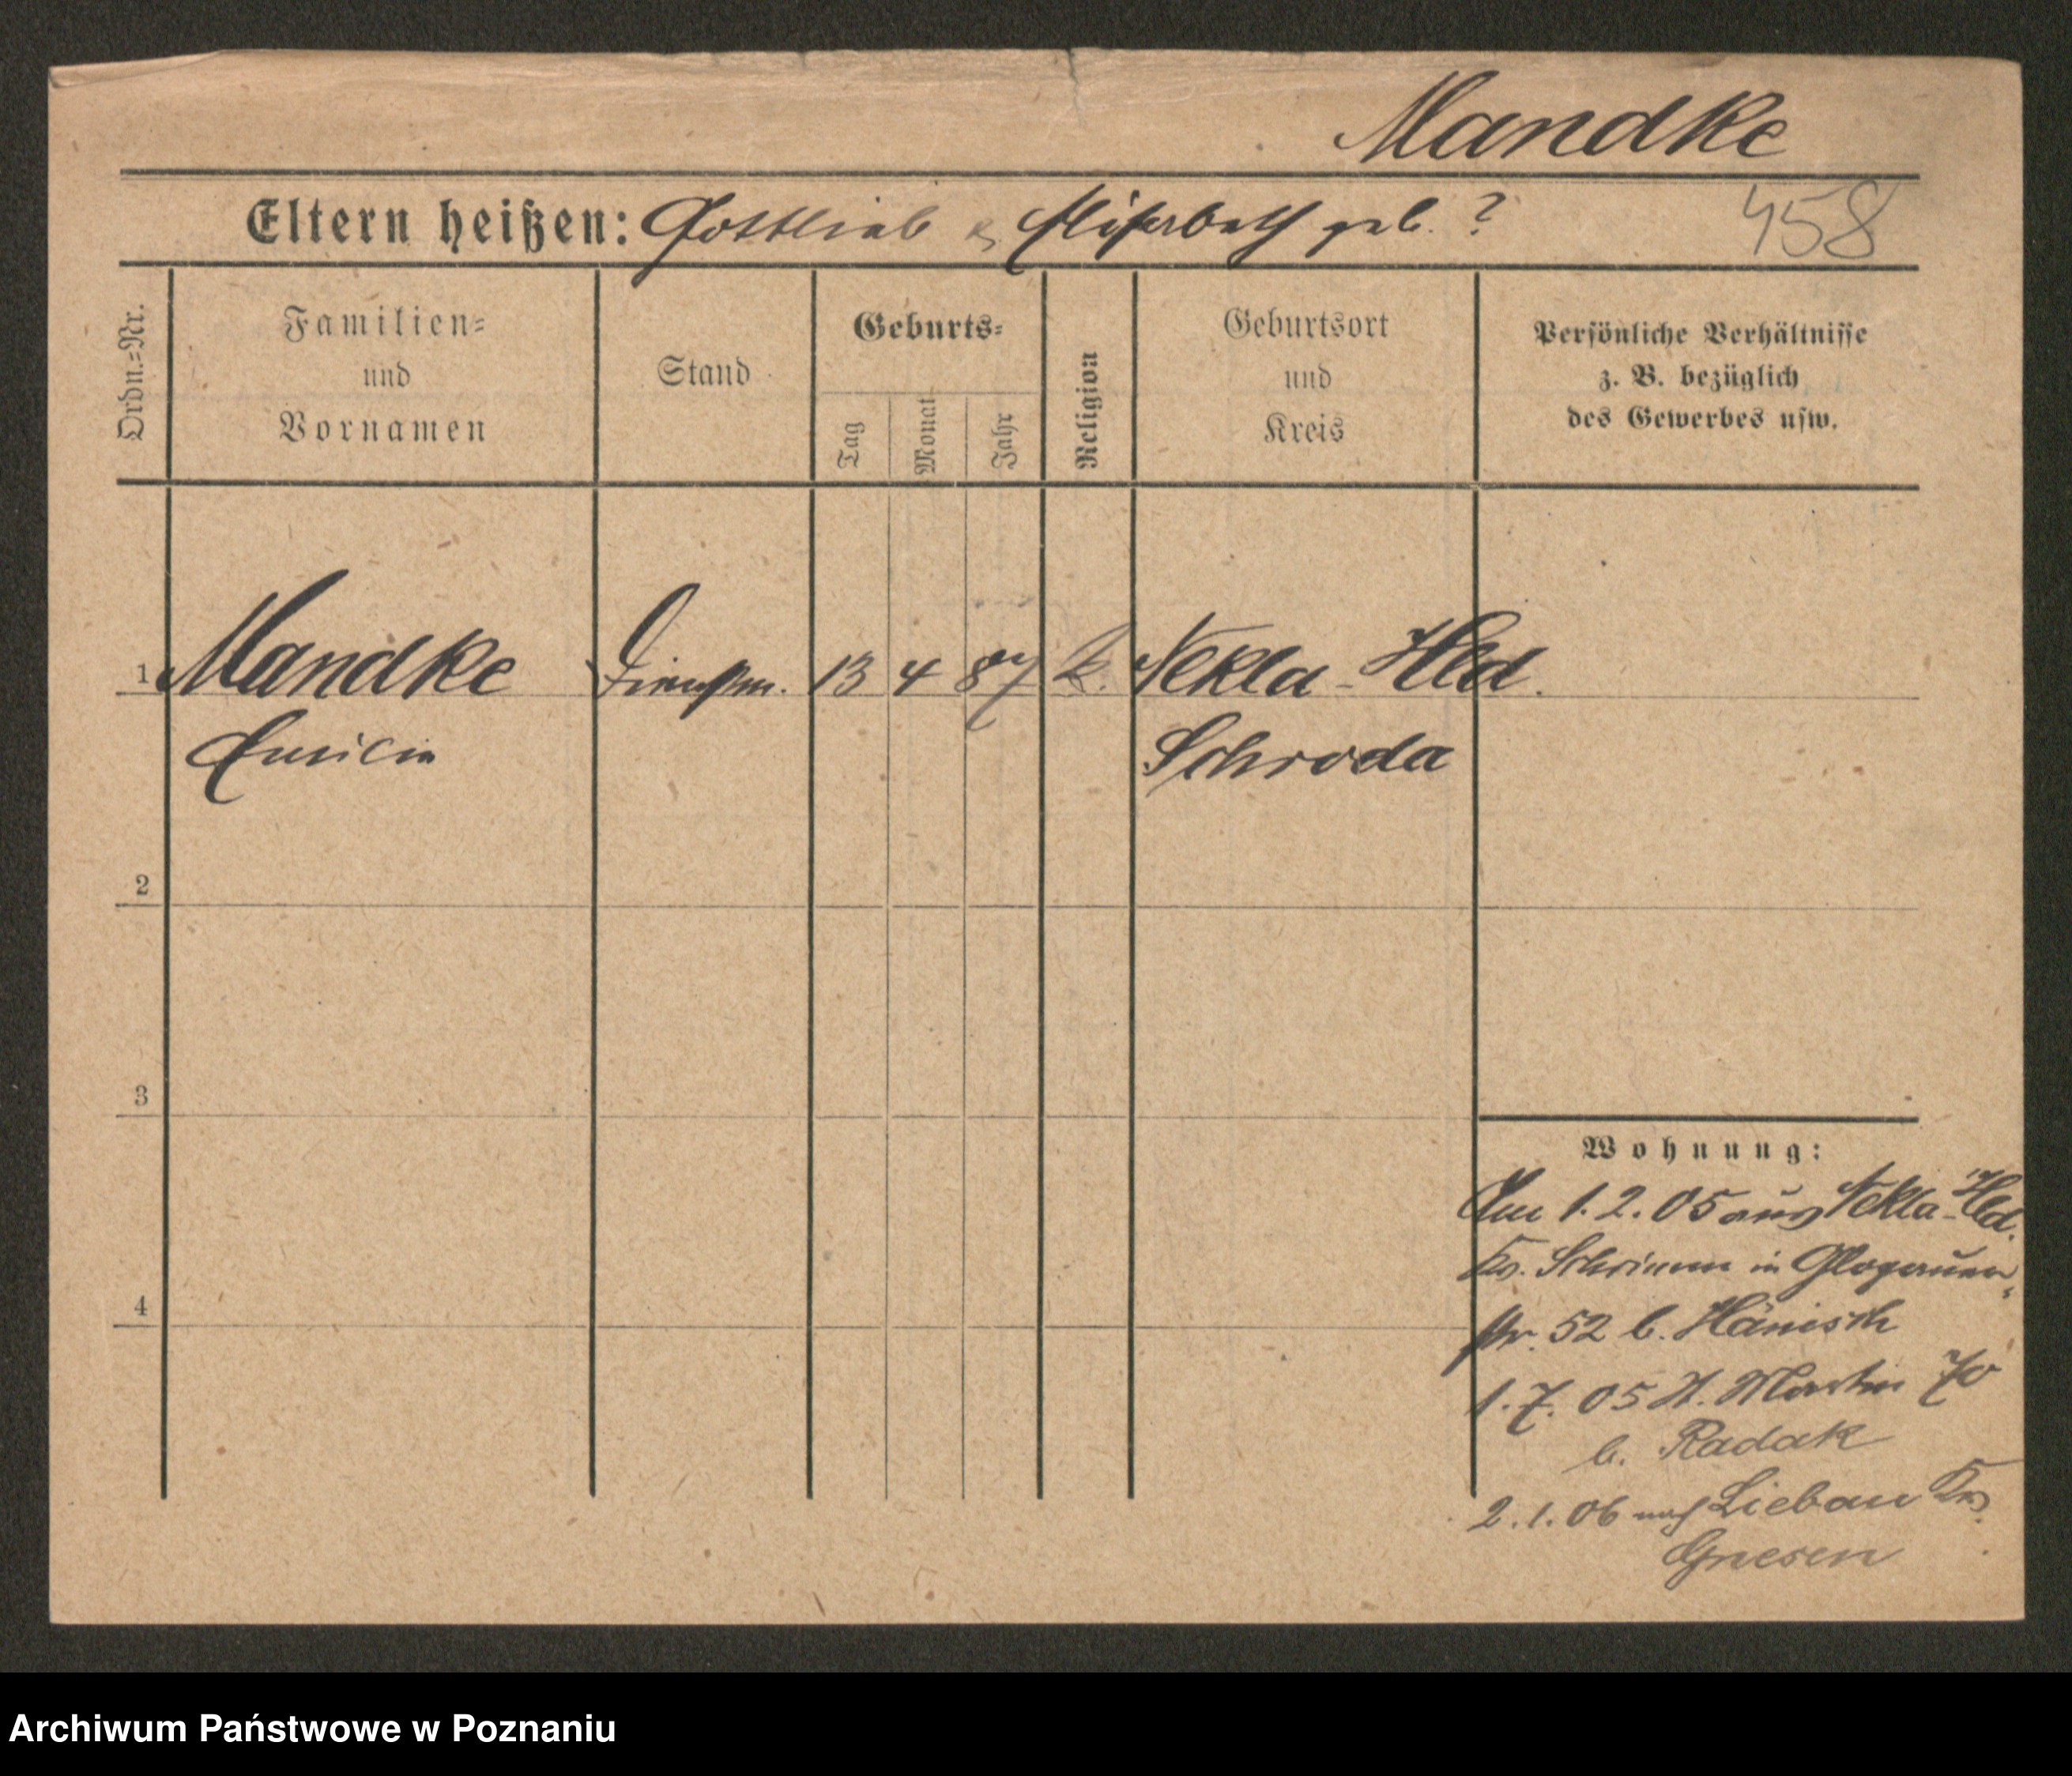 Mandke
Eltern heißen: Gottlieb & Elisabeth geb. ?
458
Ordn.=Nr.
Familien=
und
Vornamen
Stand
Geburts=
Tag
Monat
Jahr
Religion
Geburtsort
und
Kreis
Persönliche Verhältnisse
z. B. bezüglich
des Gewerbes usw.
1 Mandke Dienstm. 13 4 87 k. Nekla-Hld.
Emilie Schroda
2
3
4
Wohnung:
Am 1.2.05 aus Nekla-Hld.
Krs. Schrimm in Glogauer
str. 52 b. Hänisch
1.7.05 St. Martin 70
b. Radak
2.1.06 nach Liebau Krs.
Gnesen
Archiwum Państwowe w Poznaniu